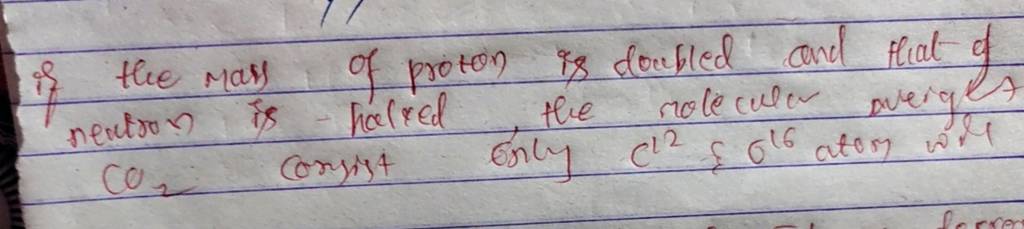 if the mass of proton is doubled and that of
neutron is halved, the molecular
CO2 consist only C12 & O16 atom will